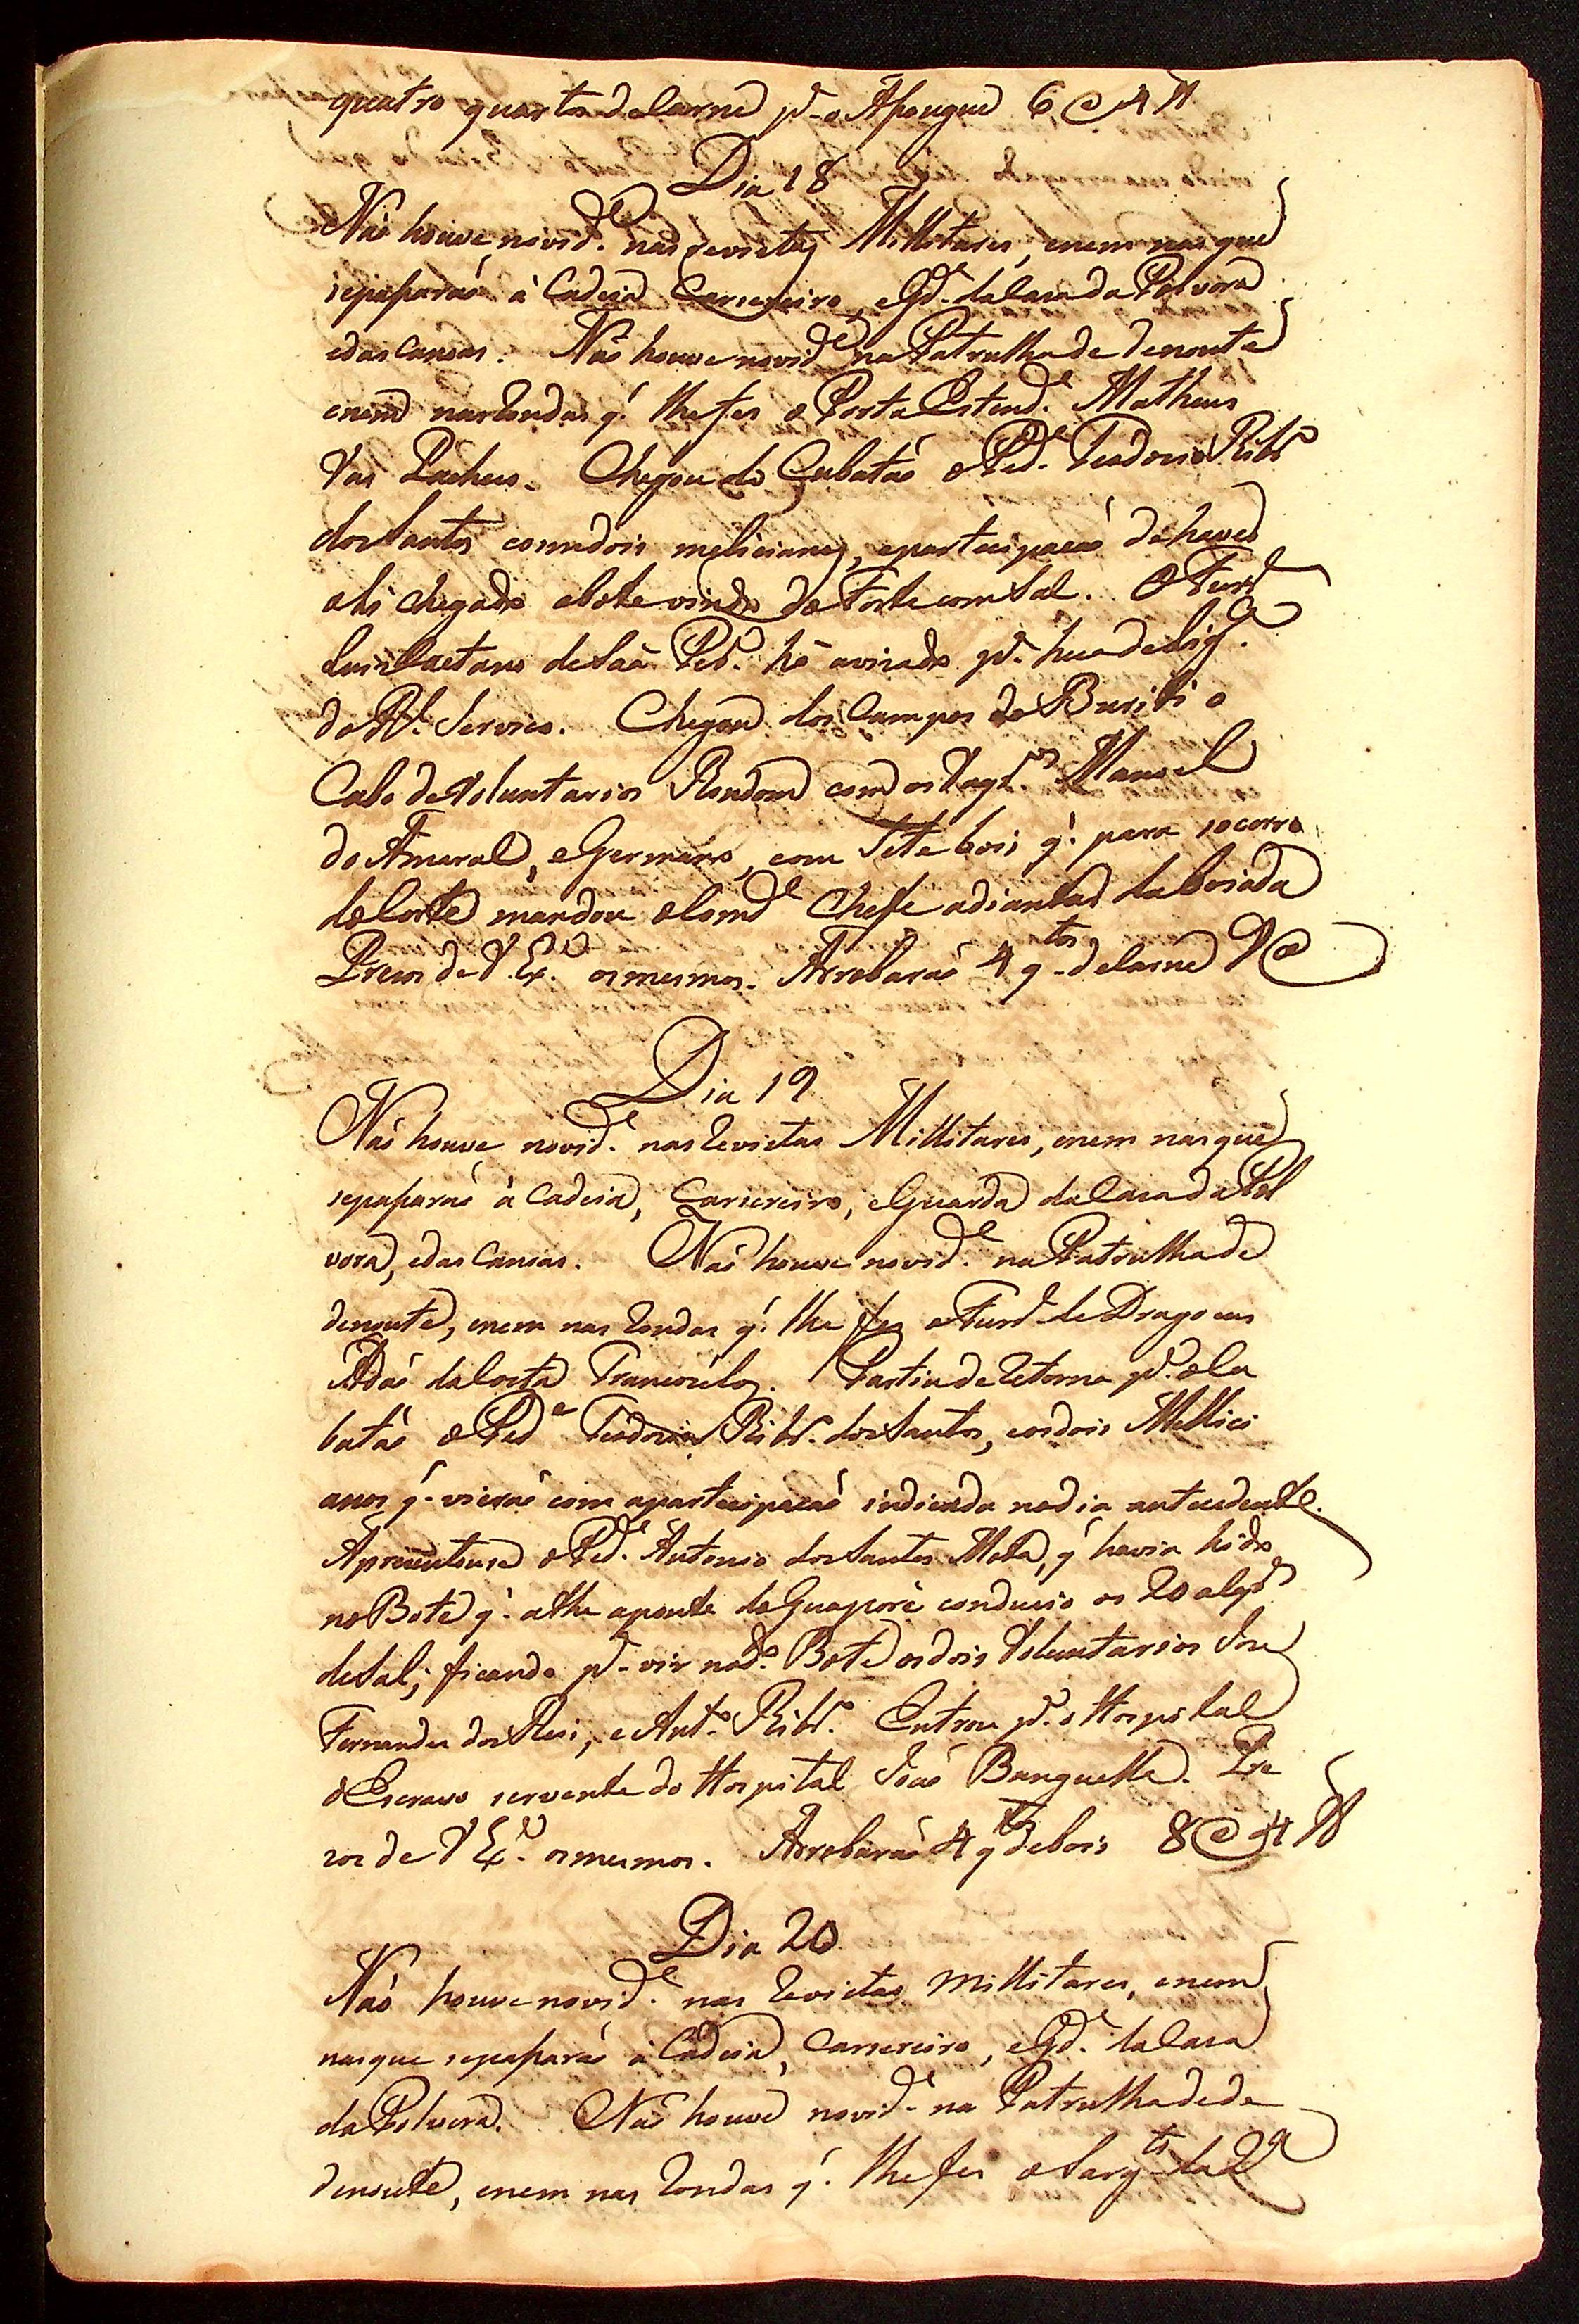 quatro quartos de Carne p.ª o Asougue 6 @ 4 lb
Dia 18
Não houve novid.e nas revistas Millitares, enem nas que
sepassarão à Cadeia Carcereiro, eGd.ª daCasa da Polvora
edas Canoas. Não houve novid.e na Patrulha de denoute
enem nas rondas q.' lhe fes o Porta Estend.e Matheus
Vas Pacheco. Chegou do Cubatão o Ped.e Teodorio Ribr.o
dos Santos comdois melicianos, eparticipação de haver
ahi chegado obote vindo do Forte com Sal. O Fur.l
Luis Caetano deSaã Per.ª hé avizado p.ª hua delig.ª
do R.l Serviço. Chegou dos Campos do Buriti o
Cabo de Voluntarios Rondom com os Drag.s Manoel
do Amaral, eGermano, com Sete bois q.' para socorro
do Corte mandou o Com.de Chefe adiantad da Boiada
Prezos de V. Ex.ª os mesmos. Arrobarão 4 q.tos de Carne 9 @
Dia 19
Não houve novid.e nas revistas Millitares, enem nas que
sepassarão à Cadeia, Carcereiro, eGuarda daCasa da Pol
vora, edas Canoas. Não houve novid.e na Patrulha de
denoute, enem nas rondas q.' lhe fes o Fur.l de Dragoens
Adão da Costa Trancoulos. Partiu de retorno p.ª o Cu
batão o Ped.e Teodorio Ribr.o dos Santos, eos dois Millici
anos q.' vierão com aparticipação indicada nodia antecedente.
Aprezentouse o Ped.e Antonio dos Santos Mota, q.' havia hido
no Bote q.' athe aponte do Guaporé conduzio os 20 alqr.s
de Sal; ficando p.ª vir nod.o Bote os dois Voluntarios Joze
Fernandes dos Reis, e Ant.o Ribr.o Entrou p.ª o Hospital
o Escravo servente do Hospital João Banguella. Pre
zos de V. Ex.ª os mesmos. Arrobarão 4 q.tos de bois 8 @ 4 lb
Dia 20
Não houve novid.e nas revistas Millitares, enem
nas que sepassarão à Cadeia, Carcereiro, eGd.ª da Casa
da Polvora. Não houve novid.e na Patrulha dede
denoute, enem nas rondas q.' lhe fes o Sarg.to da 2.ª